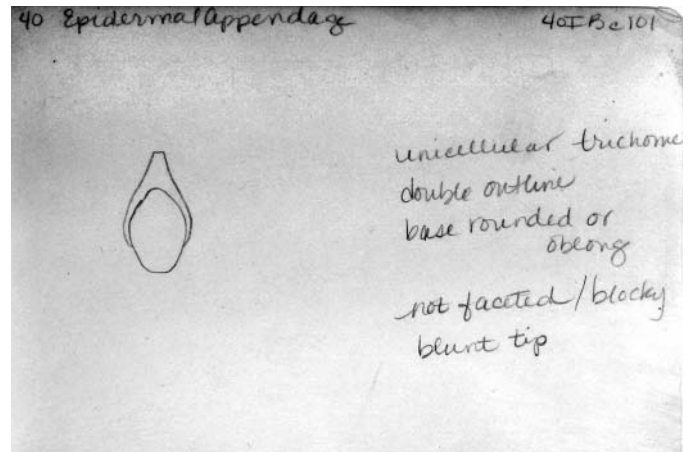 40 Epidermal Appendage
40IBc101
unicellular trichome
double outline
base rounded or
oblong
not faceted/blocky
blunt tip